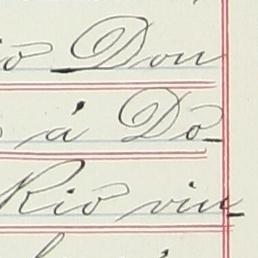 Dou
á Do-
Rio vin-